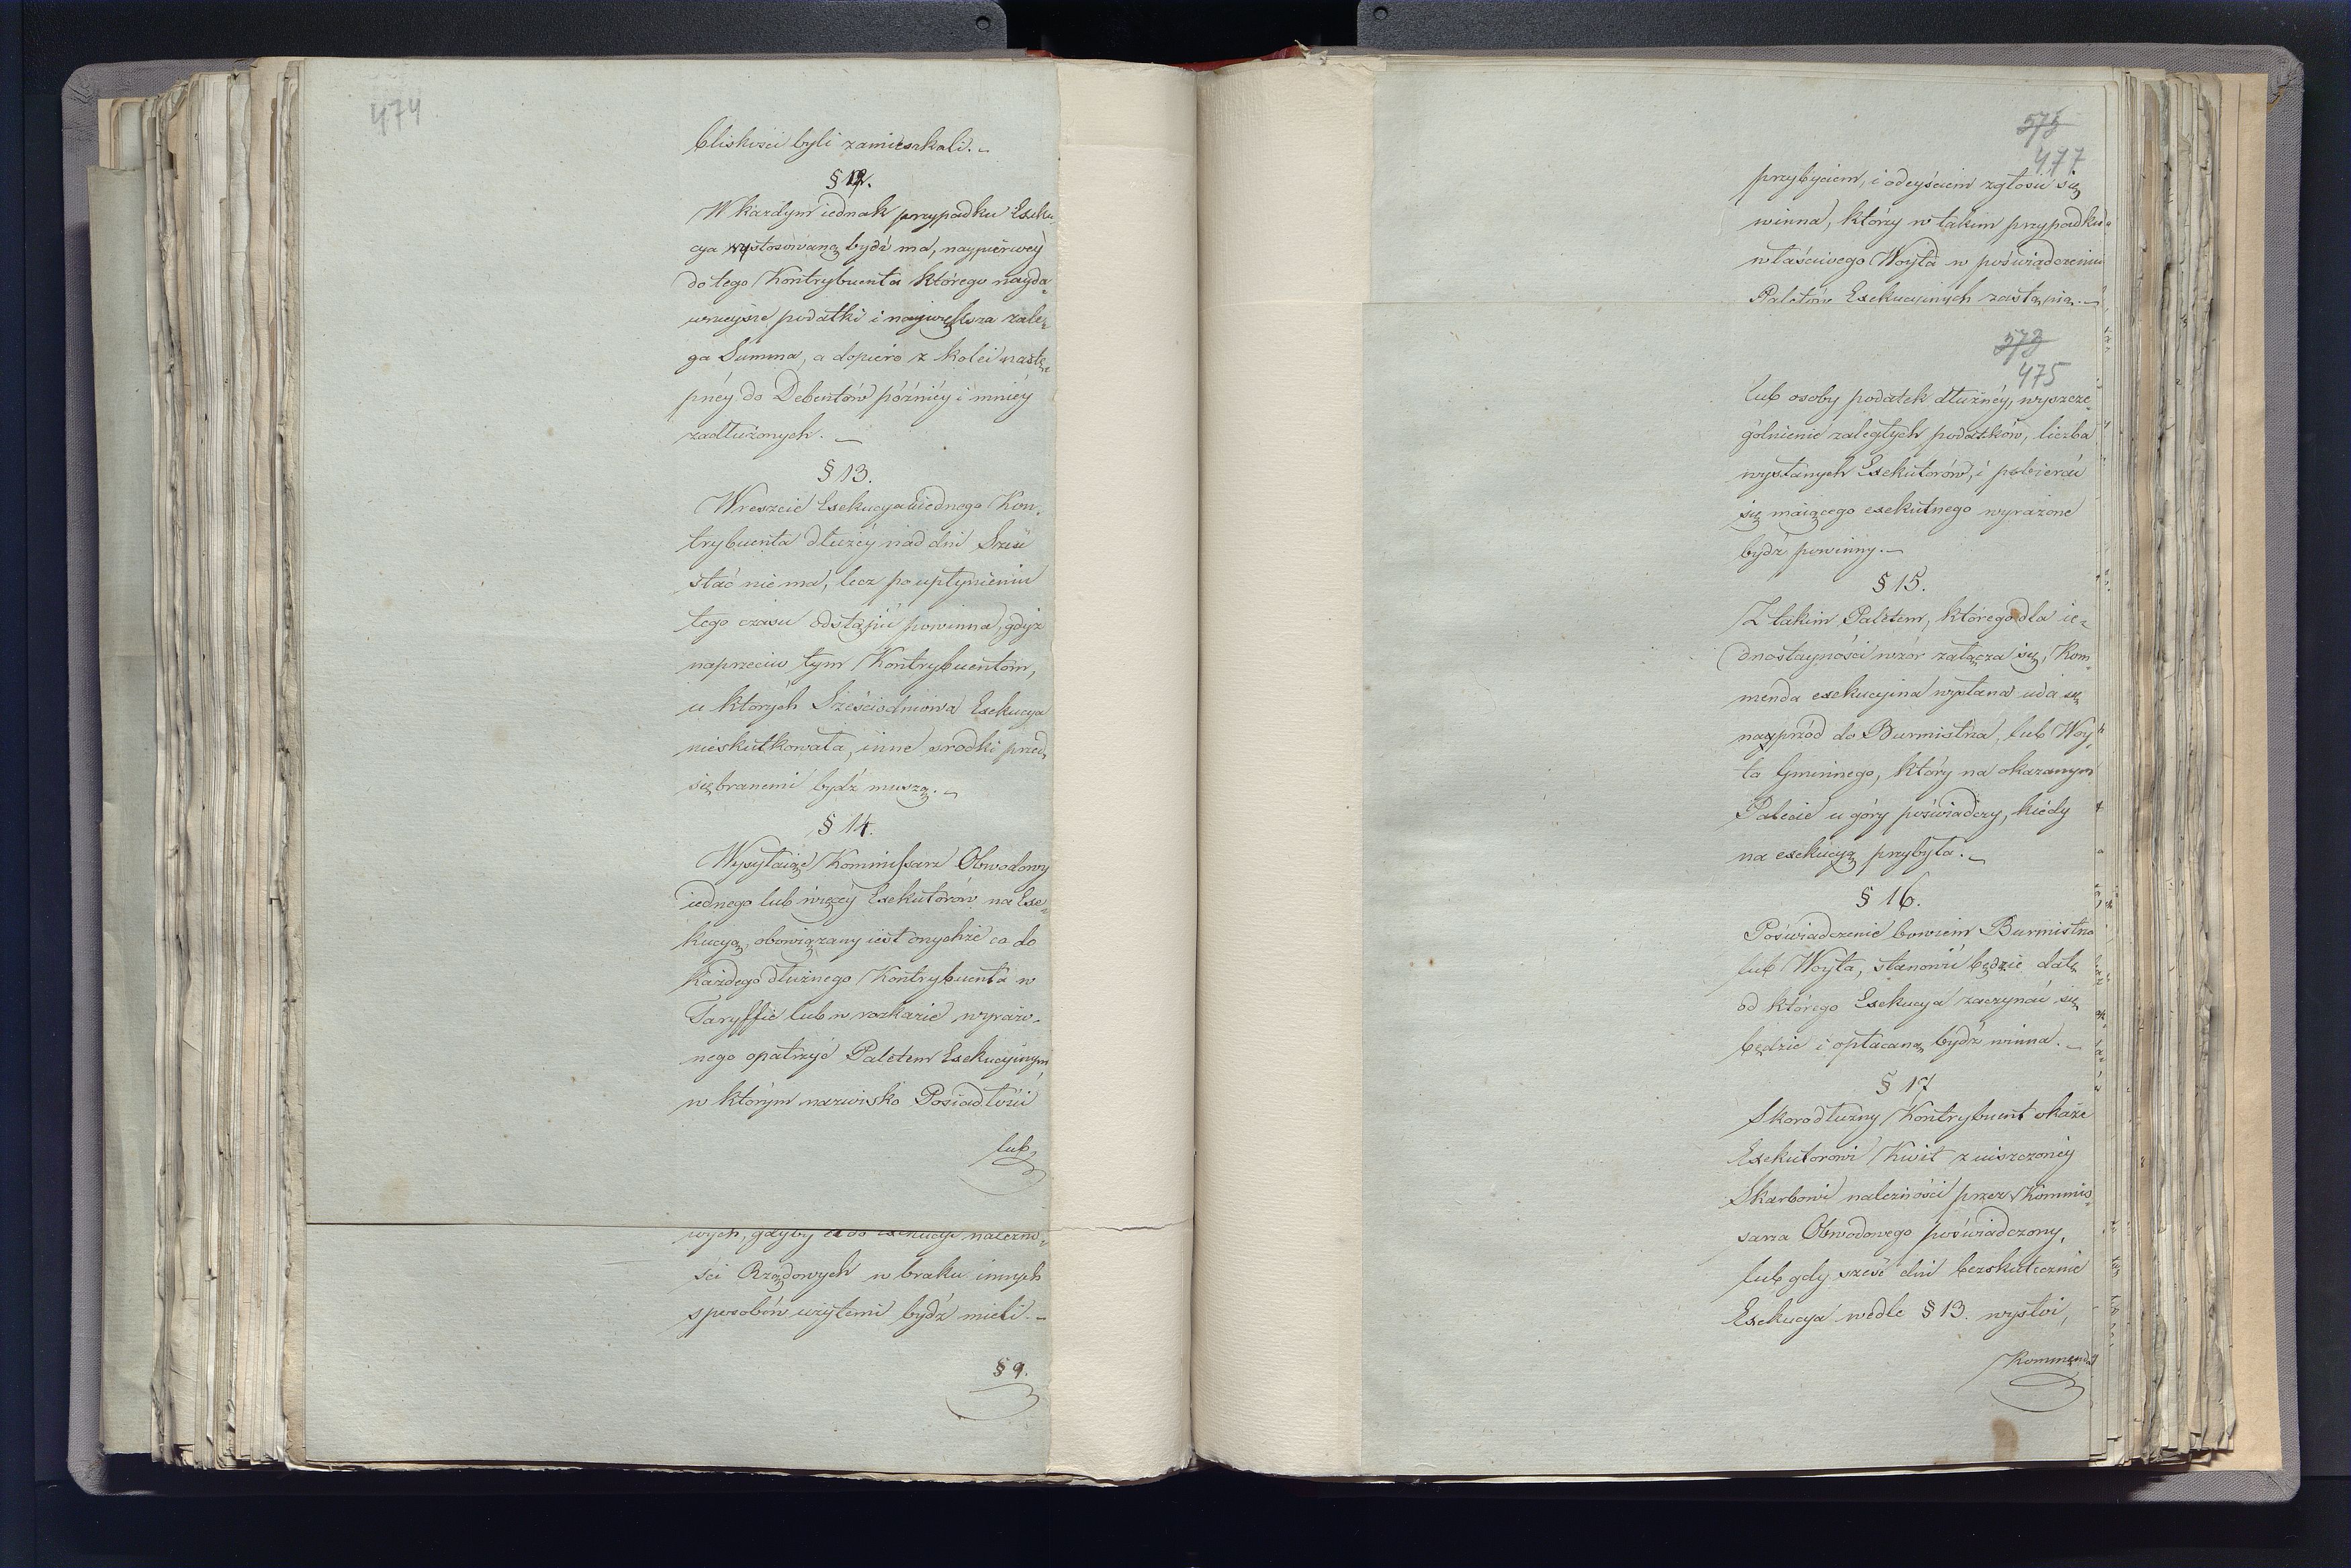 474
bliskości byli zamieszkali. –
§ 12.
W każdym iednak przypadku Exeku-
cya wystosowaną bydź ma, naypierwey
do tego Kontrybuenta którego nayda-
wnieysze podatki i naywiększa zale-
ga Summa, a dopiero z kolei nastę-
pnéy do Debentów późniéy i mniéy
zadłużonych. –
§ 13.
Wreszcie Exekucya u iednego Kon-
trybuenta dłużéy nad dni Sześć
stać nie ma, lecz po upłynieniu
tego czasu odstąpić powinna, gdyż
naprzeciw tym Kontrybuentom,
u których Sześciodniowa Exekucya
nieskutkowała, inne srodki przed-
siębranemi bydź muszą. –
§ 14.
Wysyłaiąc Kommissarz Obwodowy
iednego lub więcéy Exekutorów na Exe-
kucyą, obowiązany iest onychże co do
każdego dłużnego Kontrybuenta w
Taryffie lub w rozkazie wyrażo-
nego opatrzyć Paletem Exekucyinym
w którym nazwisko Posiadłości
lub
wych, gdyby ci do exekucyi należno-
ści Rządowych w braku innych
sposobów użytemi bydź mieli. –
§ 9.
575
477
przybyciem, i odeyściem zgłosić się
winna, którzy w takim przypadku
właściwego Woyta w poświadczeniu
Paletów Exekucyinych zastąpią. –
573
475
lub osoby podatek dłużnéy, wyszcze-
gólnienie zaległych podatków, liczba
wysłanych Exekutorów, i pobierać
się maiącego exekutnego wyrażone
bydź powinny. –
§ 15.
Z takim Paletem, którego dla ie-
dnostayności wzór załącza się, Kom-
menda exekucyina wysłana uda się
nayprzód do Burmistrza, lub Woy-
ta Gminnego, który na okazanym
Palecie u góry poświadczy, kiedy
na exekucyą przybyła. –
§ 16.
Poświadczenie bowiem Burmistrza
lub Woyta, stanowić będzie datę
od którego Exekucya zaczynać się
będzie i opłacaną bydź winna. –
§ 17
Skoro dłużny Kontrybuent okaże
Exekutorowi Kwit z uiszczonéy
Skarbowi należności przez Kommis-
sarza Obwodowego poświadczony,
lub gdy sześć dni bezskutecznie
Exekucya wedle § 13. wystoi,
Kommenda